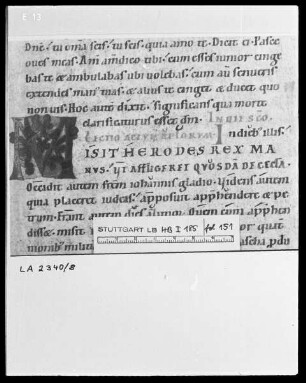 E 13
Dn̄e. tu om̄a scis. tu scis. quia amo te. Dicit ei. Pasce
oues meas. Am̄ am̄ dico tibi. cum esses iunior cinge
bas te & ambulabas ubi uolebas. cum aū senueris
extendes man' tuas. & alius te cinget. & ducet quo
non uis. Hoc autē dixit. significans qua morte
clarificaturus esset
LECTIO ACTVVM APOSTOLORVM
In dieb' illis.
MISIT HERODES REX MA
NVS. VT AFFLIGERET QVOSDĀ DE ECCLA.
Occidit autem frēm iohannis gladio. Videns autem
quia placeret iudeis. apposuit apphendere & pe
trum. autem dies Quem cum apphen
disset. misit in
morib' milit
STUTTGART LB HB I 185 fol 151
LA 2340/8